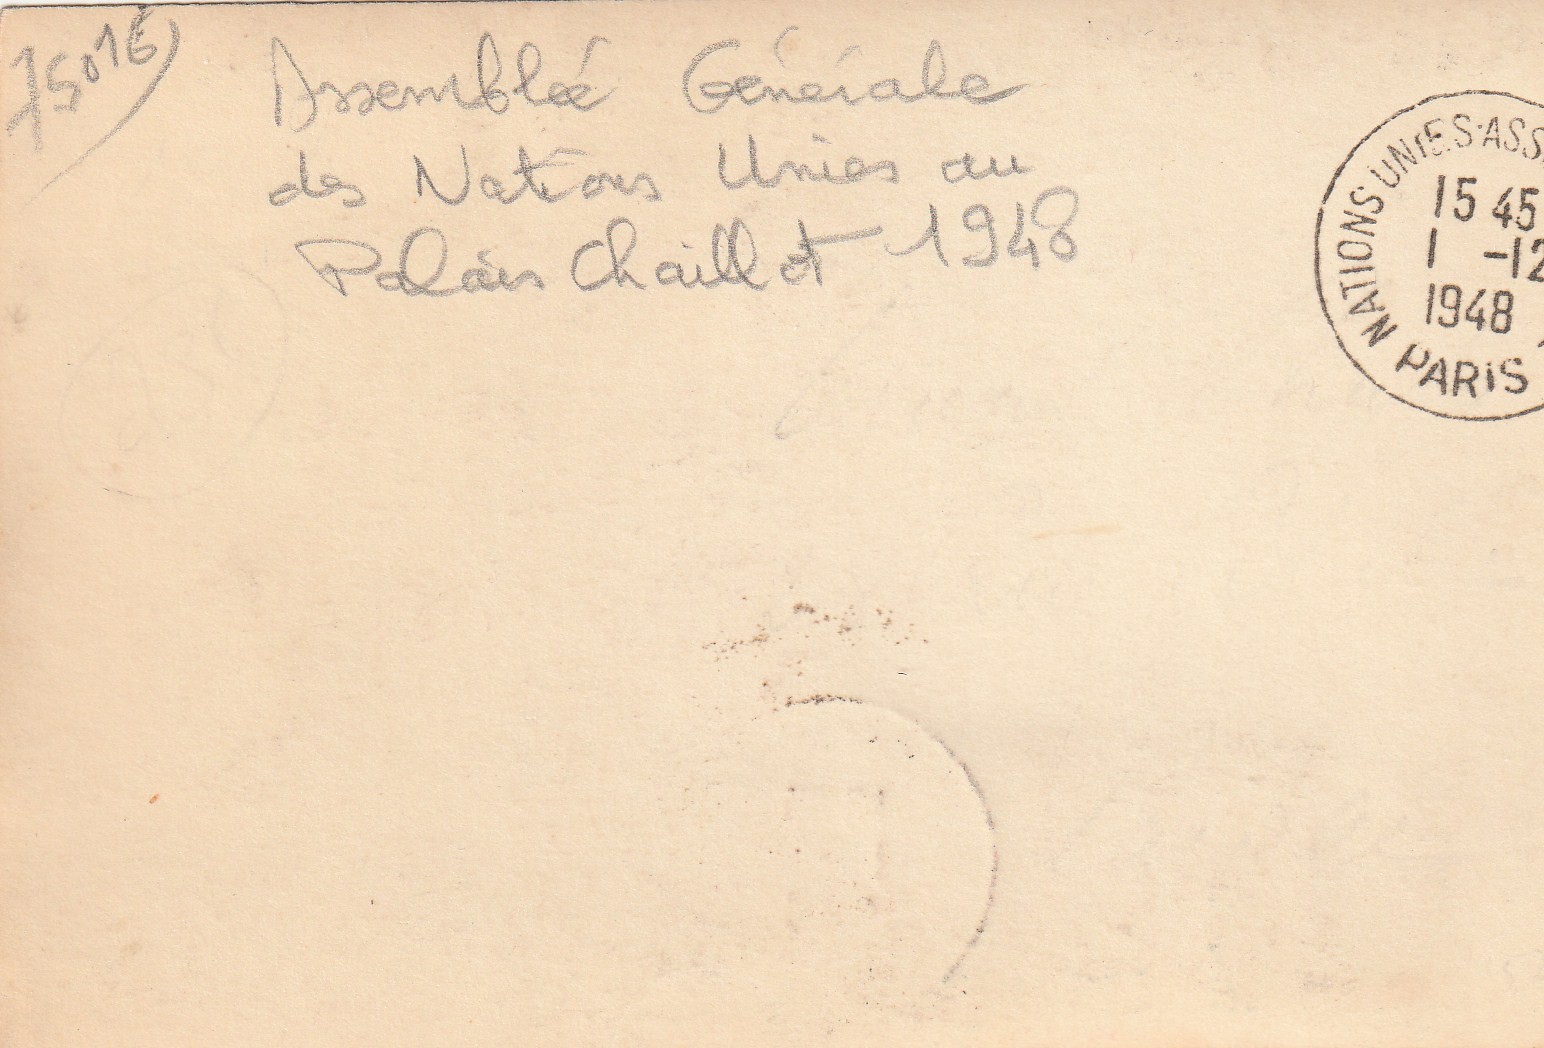 75016
Assemblée Générale
des Nations Unies au
Palais Chaillot 1948
NATIONS UNIES·ASS
15 45
1 -12
1948
PARIS